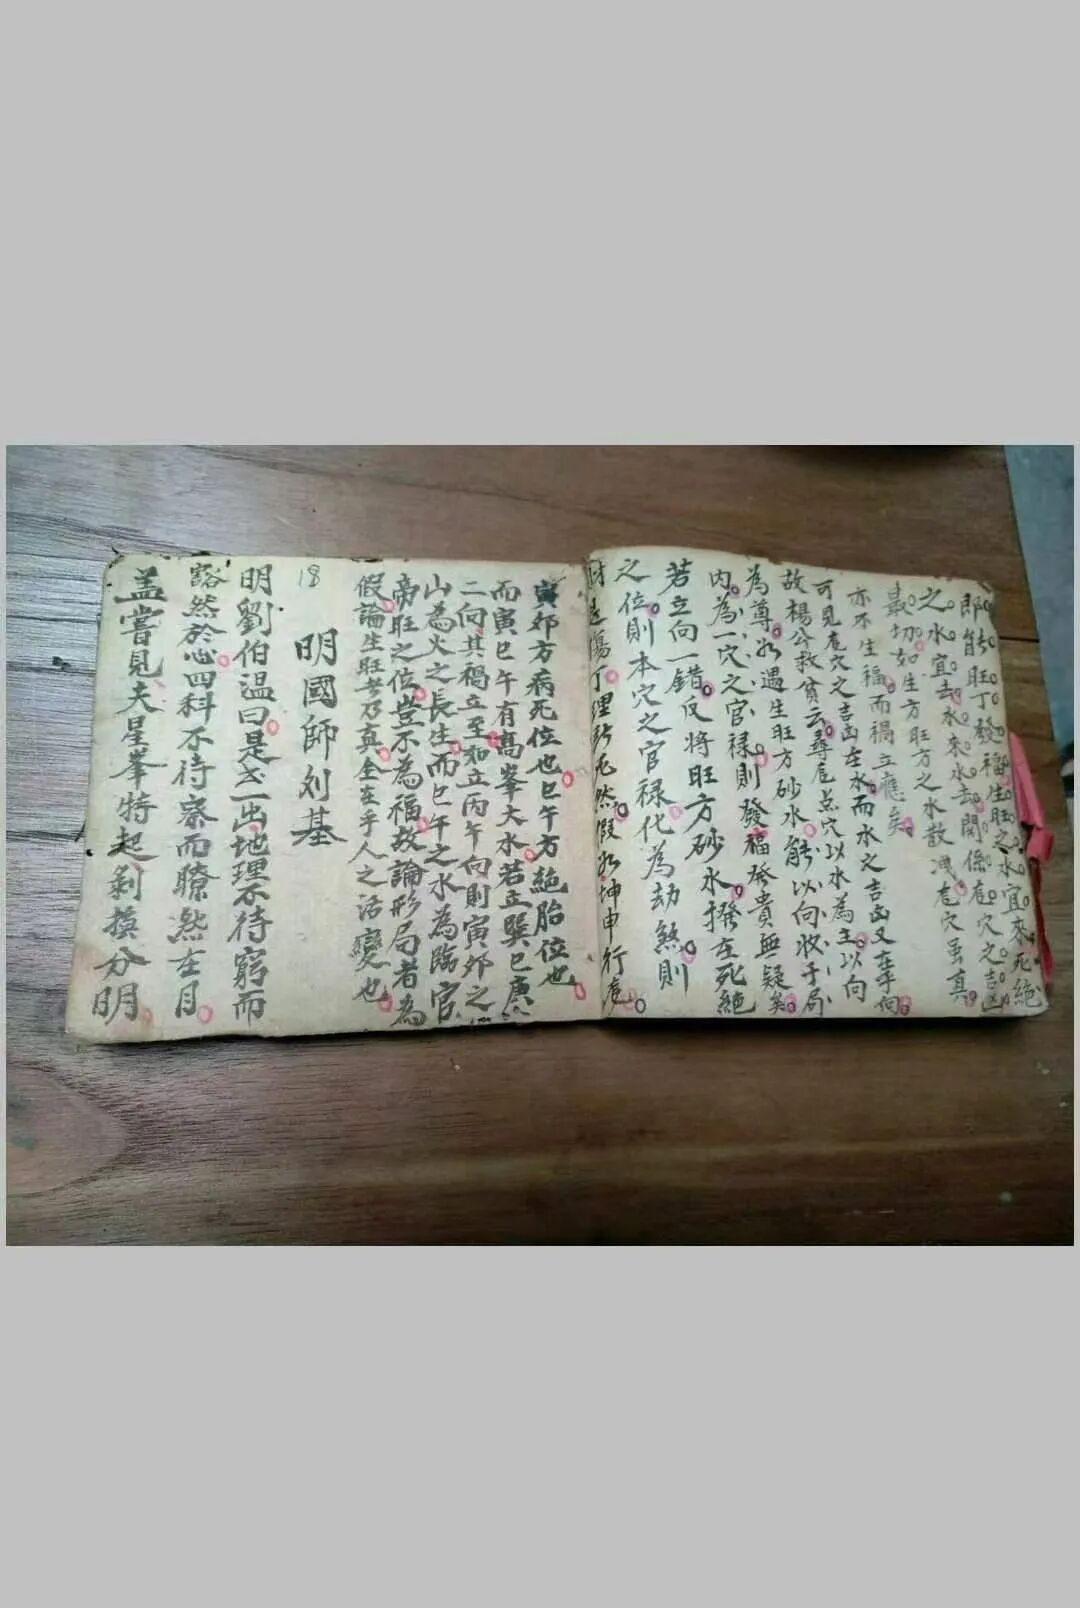 即能旺丁發福生旺之水宜來死絕
之水宜去水來水去関係扂穴之吉凶
最切如生方旺方之水散洩扂穴虽真
亦不生福而禍立應矣
可見扂穴之吉凶在水而水之吉凶又在乎向
故楊公救貧云尋扂点穴以水為主以向
為尊必遇生旺方砂水能以向收于局
内為一穴之官禄則發福發貴無疑矣
若立向一錯反將旺方砂水撥在死絕
之位則本穴之官禄化為劫煞則
財退傷丁理 死然假必坤申行扂
寅郊方病死位也巳午方絕胎位也
而寅巳午有高峯大水若立巽巳庚
二向其禍立至如立丙午向則寅郊之
山為火之長生而巳午之水為臨官
帝旺之位豈不為福故論形局者為
假論生旺者乃真全在乎人之活變也
18
明國師刘基
明劉伯温曰是書一出地理不待窮而
豁然於心四科不待察而瞭然在目
盖嘗見夫星峯特起剝換分明